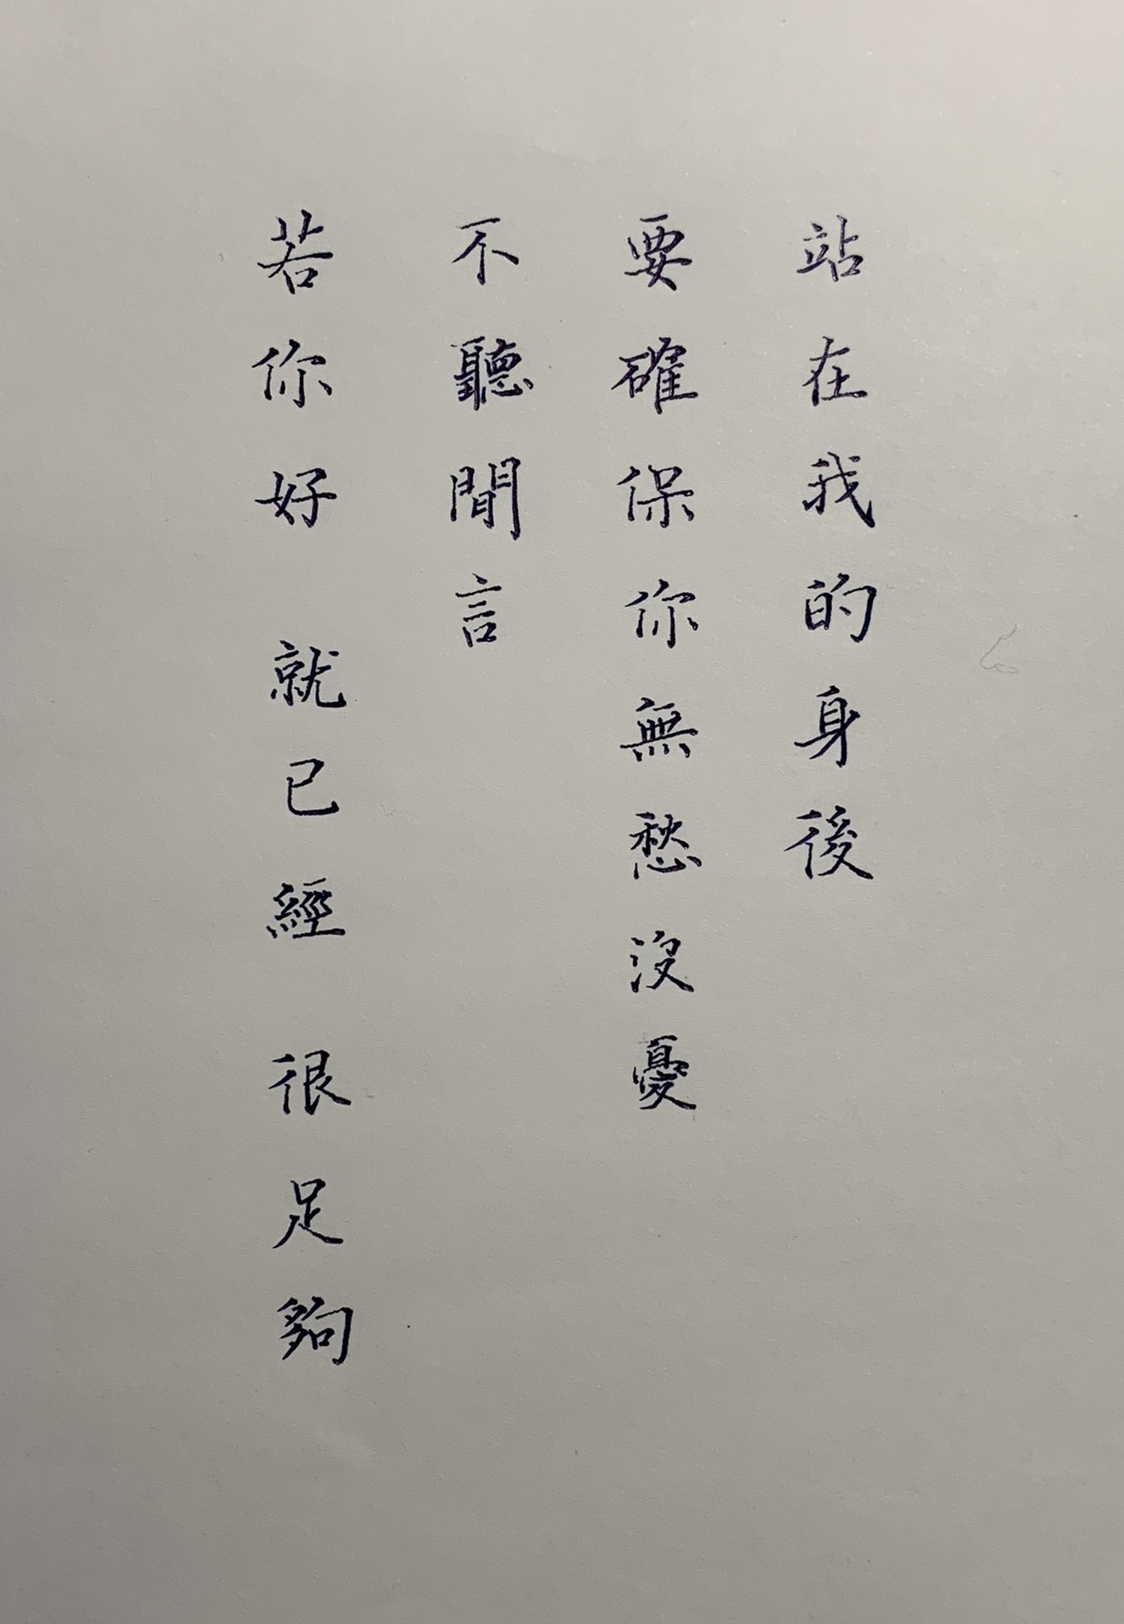 站在我的身後
要確保你無愁沒憂
不聽閒言
若你好 就已經 很足夠